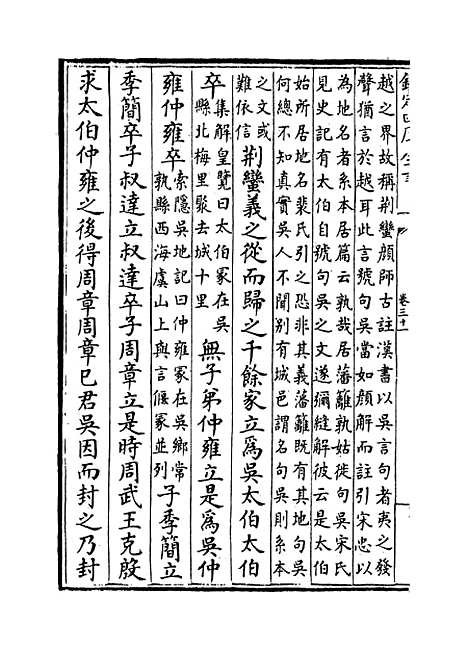 欽定四庫全書
卷三十一
越之界故稱荆蠻顔師古註漢書以吳言句者夷之發
聲猶言於越耳此言號句吳當如顔解而註引宋忠以
為地名者系本居篇云孰哉居藩籬孰姑徙句吳宋氏
見史記有太伯自號句吳之文遂彌縫解彼云是太伯
始所居地名裴氏引之恐非其義藩籬既有其地句吳
何總不知真實吳人不聞别有城邑謂名句吳則系本
之文或
難依信
荆蠻義之從而歸之千餘家立爲吳太伯太伯
卒
集解皇覽曰太伯冢在吳
縣北梅里聚去城十里
無子弟仲雍立是爲吳仲
雍仲雍卒
索隱吳地記曰仲雍冢在吳鄉常
孰縣西海虞山上與言偃冢並列
子季簡立
季簡卒子叔達立叔達卒子周章立是時周武王克殷
求太伯仲雍之後得周章周章已君吳因而封之乃封